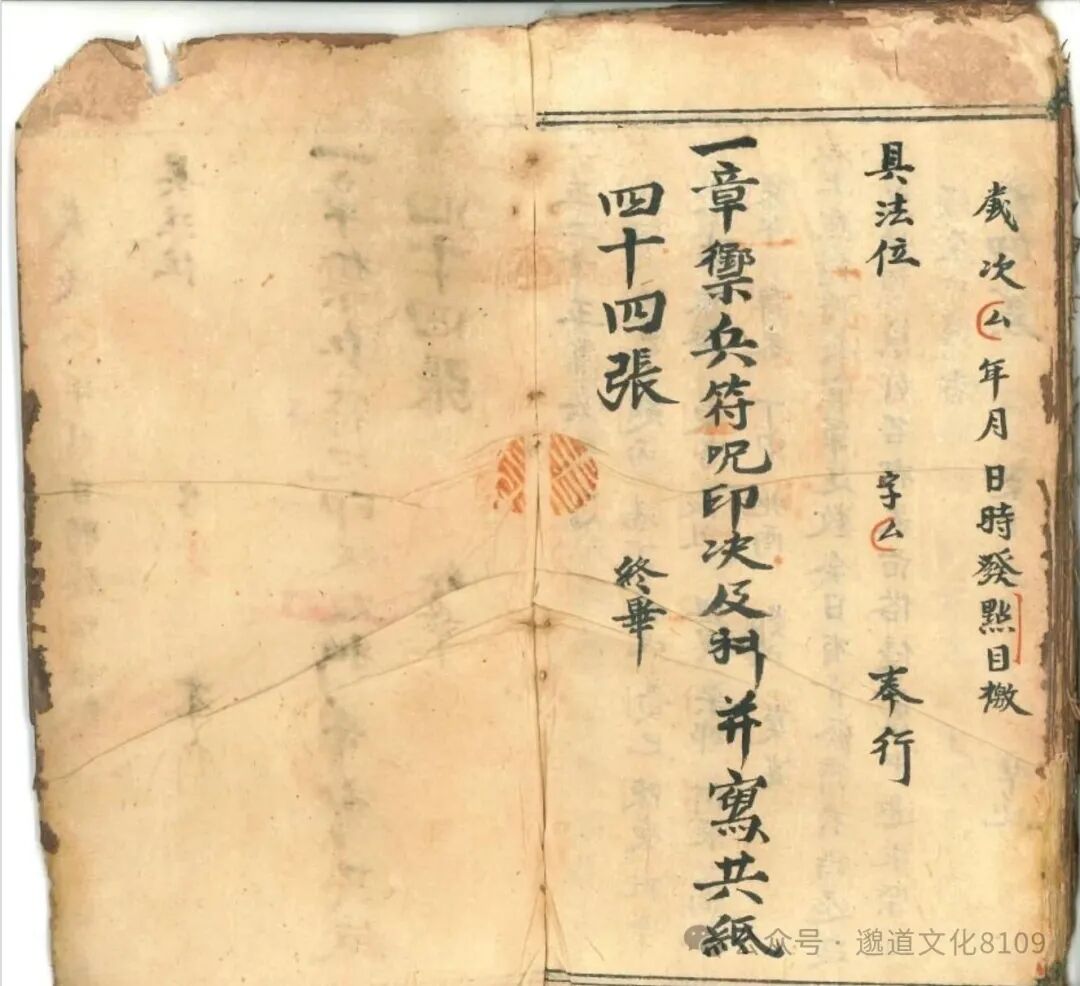 歲次厶年月日時發點目檄
具法位 字厶 奉行
一章禦兵符呪印决及科并寫共紙
四十四張 終畢
公众号·邈道文化8109